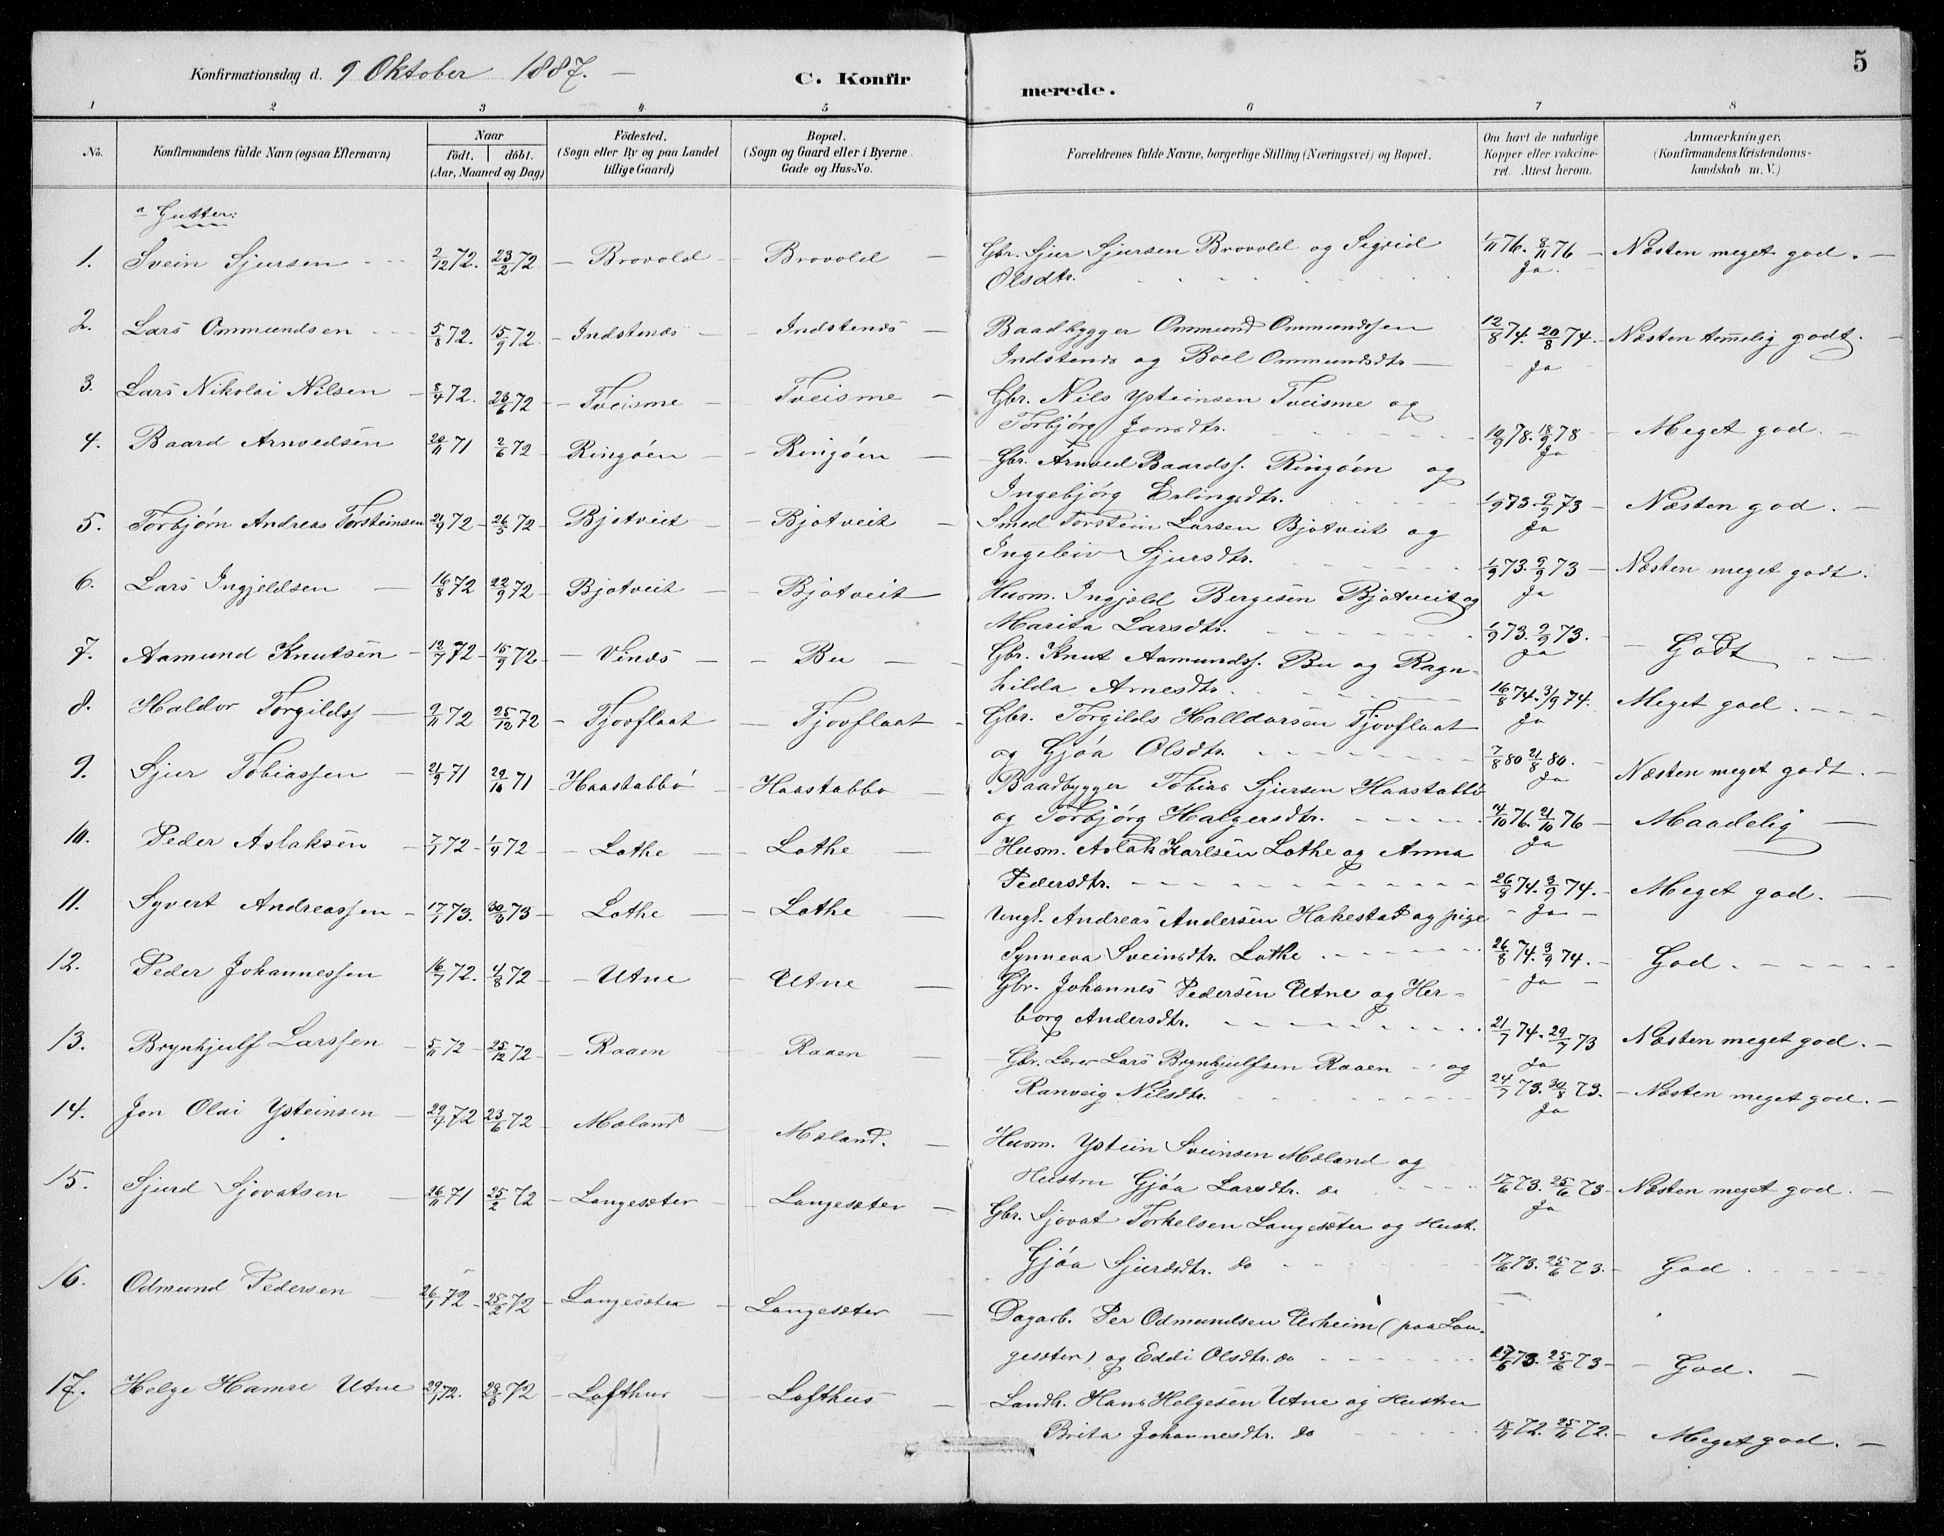 5
Konfirmationsdag d. 9 Oktober 1887. —
C. Konfirmerede.
1 2 3 4 5 6 7 8
No.
Konfirmandens fulde Navn (ogsaa Efternavn)
Naar
födt. döbt.
(Aar, Maaned og Dag)
Födested.
(Sogn eller By og paa Landet
tillige Gaard)
Bopæl.
(Sogn og Gaard eller i Byerne
Gade og Hus-No.
Forældrenes fulde Navne, borgerlige Stilling (Næringsvei) og Bopæl.
Om havt de naturlige
Kopper eller vakcine-
ret. Attest herom.
Anmærkninger.
(Konfirmandens Kristendoms-
kundskab m. V.)
a Gutter:
1. Svein Sjursen 2/12 72. 23/2 72 Brovold Brovold Gbr. Sjur Sjursen Brovold og Sigrid 1/11 76. 8/11 76 Næsten meget god.
Olsdtr. Ja.
2. Lars Ommundsen 5/8 72. 15/9 72. Indstenæs Indstenæs Baadbygger Ommund Ommundssen 12/8 74. 20/8 74. Næsten temmelig godt.
Indstenæs og Boel Ommundsdtr Ja
3. Lars Nikolai Nilsen 8/4 72. 23/6 72 Tveisme Tveisme Gbr. Nils Ysteinsen Tveisme og
Torbjörg Jonsdtr. 10/9 78. 18/9 78 Meget god.
Ja
4. Baard Arnvedsen 20/11 71 2/6 72 Ringöen Ringöen Gbr. Arnved Baardss. Ringöen og
Ingebjörg Erlingsdtr. 1/9 73. 9/9 73 Næsten god.
Ja
5. Torbjörn Andreas Torsteinsen 21/9 72 26/5 72 Bjotveit Bjotveit Smed Torstein Larsen Bjotveit og
Ingeleiv Sjursdtr. 1/9 73. 9/9 73 Næsten meget godt.
Ja
6. Lars Ingjeldsen 16/8 72 22/9 72 Bjotveit Bjotveit Husm. Ingjæld Bergesen Bjotveit og
Marita Larsdtr. 1/9 73. 9/9 73. Godt
Ja
7. Aamund Knutsen 12/7 72 15/9 72 Vinæs Bu Gbr. Knut Aamundss. Bu og Ragn-
hilda Arnesdtr. 16/8 74. 3/9 74. Meget god.
Ja
8. Haldor Torgildss 9/11 72 25/12 72 Tjovflaat Tjovflaat Gbr. Torgilds Halldorsen Tjovflaat
og Gjöa Olsdtr. 7/8 80 21/8 80. Næsten meget godt.
Ja
9. Sjur Tobiassen 21/9 71 29/10 71 Haastabbö Haastabbo Baadbygger Tobias Sjursen Haastabbö
og Torbjörg Halgersdtr. 14/10 76. 21/10 76 Maadelig
Ja
10. Peder Aslaksen 7/1 72 1/4 72 Lothe Lothe Husm. Aslak Karlsen Lothe og Anna
Pedersdtr. 26/8 74. 3/9 74. Meget god.
Ja
11. Syvert Andreassen 17/1 73. 30/3 73 Lothe Lothe Ungk. Andreas Andersen Hakestad og pige
Synneva Sveinsdtr. Lothe 26/8 74. 3/9 74. God.
Ja
12. Peder Johannessen 16/7 72. 4/8 72 Utne Utne Gbr. Johannes Pedersen Utne og Her-
borg Andersdtr. 21/7 74. 29/7 73 Næsten meget god.
Ja
13. Brynhjulf Larssen 5/11 72 25/12 72 Raaen Raaen Gbr. Lærer Lars Brynhjulfsen Raaen og
Ranveig Nilsdtr. 24/7 73. 30/8 73. Næsten meget god.
Ja
14. Jon Olai Ysteinsen 29/4 72 23/6 72 Mæland Mæland. Husm. Ystein Sveinsen Mæland og
Hustru Gjöa Larsdtr. do 17/6 73. 25/6 73 Næsten meget god.
Ja
15. Sjurd Sjovatsen 26/11 71 25/2 72 Langesæter Langesæter Gbr. Sjovat Torkelsen Langesæter og Hust.
Gjöa Sjursdtr. do 17/6 73. 25/6 73. God
16. Odmund Pedersen 26/1 72 25/2 72 Langesæter Langesæter Dagarb. Per Odmundsen Urheim (paa Lan-
gesæter) og Eddi Olsdtr. do 17/6 73. 25/6 73 God.
17. Helge Hamre Utne 29/1 72. 28/3 72 Lofthus Lofthus Landh. Hans Helgesen Utne og Hustru
Brita Johannesdtr. do 18/11 72. 25/11 72. Meget god.